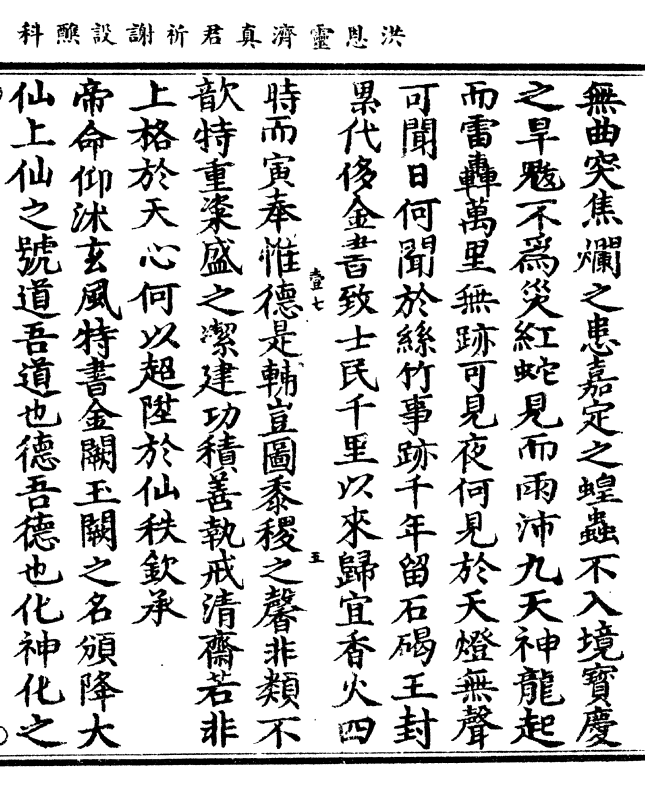 洪恩靈濟真君祈謝設醮科
無曲突焦爛之患嘉定之蝗蟲不入境寶慶
之旱魃不爲災紅蛇見而雨沛九天神龍起
而雷轟萬里無跡可見夜何見於天燈無聲
可聞日何聞於絲竹事跡千年留石碣王封
累代侈金書致士民千里以來歸宜香火四
壹七
五
時而寅奉惟德是輔豈圖黍稷之馨非類不
歆特重粢盛之潔建功積善執戒清齋若非
上格於天心何以超陞於仙秩欽承
帝命仰沭玄風特書金闕玉闕之名頒降大
仙上仙之號道吾道也德吾德也化神化之